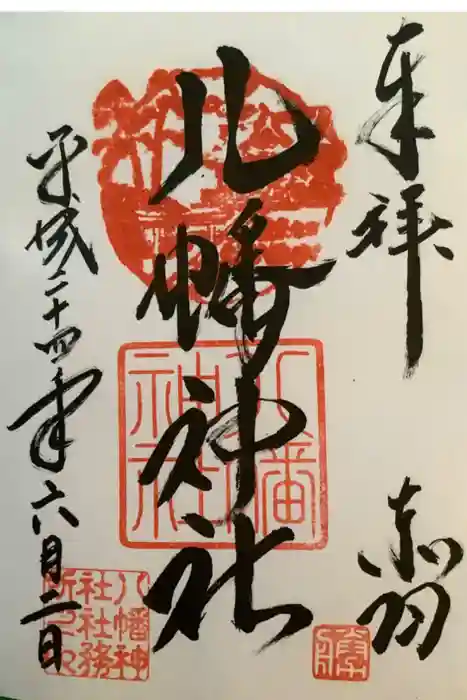 奉拝
赤羽
八幡神社
平成二十四年六月二日
八幡神社
八幡神社社務所之印